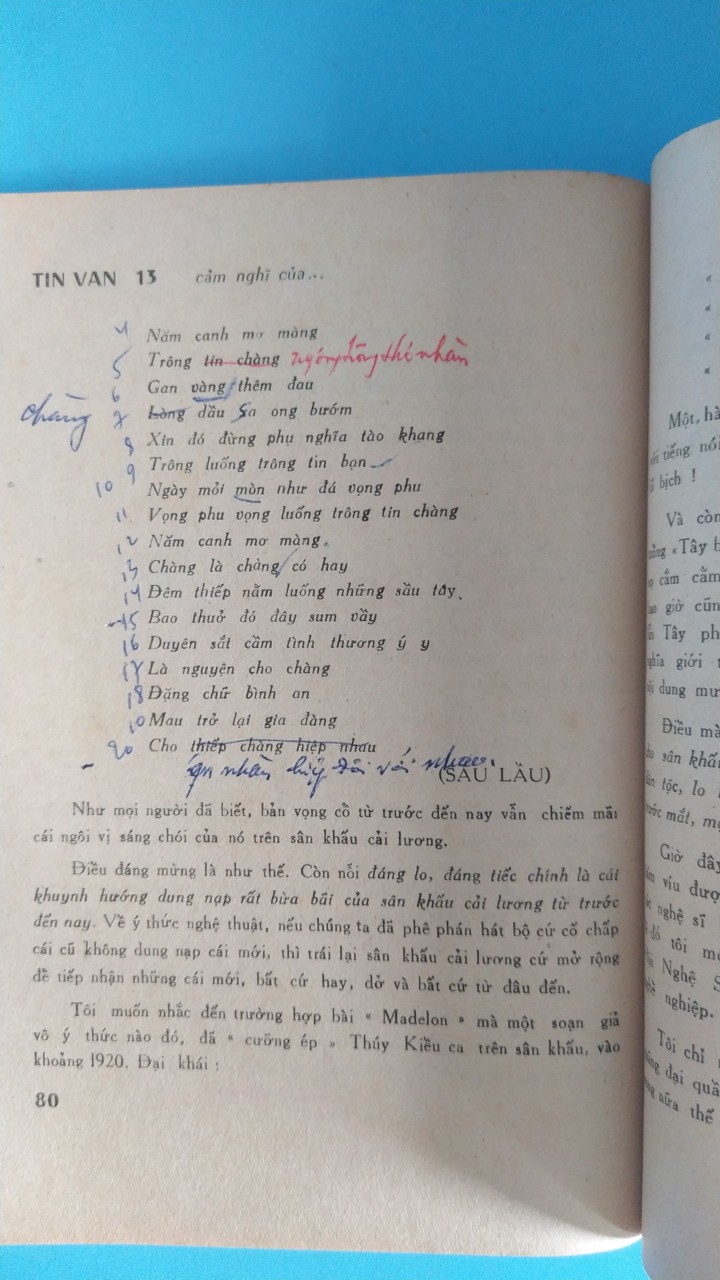 TIN VAN 13 cảm nghĩ của...
4 Năm canh mơ màng
5 Trông tin chàng
6 Gan vàng thêm đau
chàng 7 Lòng dầu sa ong bướm
8 Xin đó đừng phụ nghĩa tào khang
9 Trông luống trông tin bạn
10 Ngày mỏi mòn như đá vọng phu
11 Vọng phu vọng luống trông tin chàng
12 Năm canh mơ màng.
13 Chàng là chàng có hay
14 Đêm thiếp nằm luống những sầu tây.
15 Bao thuở đó đây sum vầy
16 Duyên sắt cầm tình thương ý y
17 Là nguyện cho chàng
18 Đặng chữ bình an
10 Mau trở lại gia đàng
20 Cho thiếp chàng hiệp nhau
nhàn đôi với nhau.
(SÁU LẦU)
Như mọi người đã biết, bản vọng cổ từ trước đến nay vẫn chiếm mãi
cái ngôi vị sáng chói của nó trên sân khấu cải lương.
Điều đáng mừng là như thế. Còn nỗi đáng lo, đáng tiếc chính là cái
khuynh hướng dung nạp rất bừa bãi của sân khấu cải lương từ trước
đến nay. Về ý thức nghệ thuật, nếu chúng ta đã phê phán hát bộ cứ cố chấp
cái cũ không dung nạp cái mới, thì trái lại sân khấu cải lương cứ mở rộng
để tiếp nhận những cái mới, bất cứ hay, dở và bất cứ từ đâu đến.
Tôi muốn nhắc đến trường hợp bài « Madelon » mà một soạn giả
vô ý thức nào đó, đã « cưỡng ép » Thúy Kiều ca trên sân khấu, vào
khoảng 1920. Đại khái :
80
«
«
«
«
Một, hà
tiếng nói
bịch !
Và còn
«Tây b
cắm cằm
giờ cũn
Tây ph
nghĩa giới t
dung mư
Điều mà
sân khấu
tộc, lo
trước mắt, mọ
Giờ đây
víu đượ
nghệ sĩ
đó tôi mo
Nghệ S
nghiệp.
Tôi chỉ
đại quầ
nữa thế